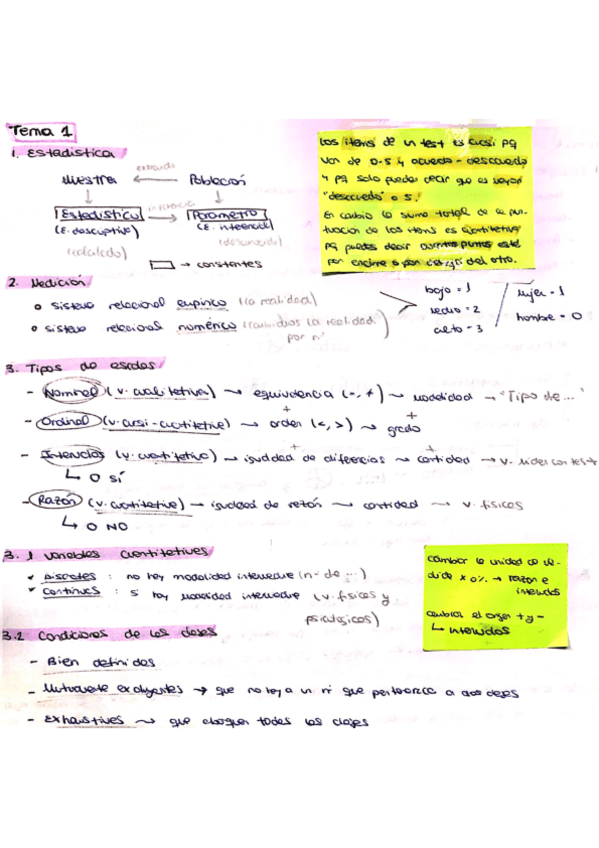 Tema 1
1. Estadística
Muestra ← extraído Población
Estadístico → inferencia Parámetro
(E. descriptiva) (E. inferencial)
(calculado) (desconocido)
→ constantes
Los items de un test es cuasi pq
van de 0-5 y acuerdo - desacuerdo
y pq solo puedes decir que es mayor
"desacuerdo" o 5.
En cambio la suma total de la pun-
tuación de los items es cuantitativa
pq puedes decir cuantos puntos está
por encima o por debajo del otro.
2. Medición
o sistema relacional empírico (la realidad)
o sistema relacional numérico (cambiamos la realidad
por nº
bajo = 1
medio = 2
alto = 3
mujer = 1
hombre = 0
3. Tipos de escalas
- Nominal (v. cualitativa) → equivalencia (=, ≠) → modalidad → "Tipo de..."
+ +
- Ordinal (v. cuasi-cuantitativa) → orden (<, >) → grado
+ +
- Intervalos (v. cuantitativa) → igualdad de diferencias → cantidad → v. miden con test
↳ 0 SÍ
- Razón (v. cuantitativa) → igualdad de razón → cantidad → v. físicas
↳ 0 NO
3.1 Variables cuantitatives
Discretes : no hay modalidad intermedia (nº de ...)
Continues : sí hay modalidad intermedia (v. físicas y
psicológicas)
cambiar la unidad de me-
dida x o % → razón e
intervalos
cambiar el origen + y -
↳ intervalos
3.2 Condiciones de las clases
- Bien definidas
- Mutuamente excluyentes → que no haya un nº que pertenezca a dos clases
- Exhaustives → que abarquen todas las clases